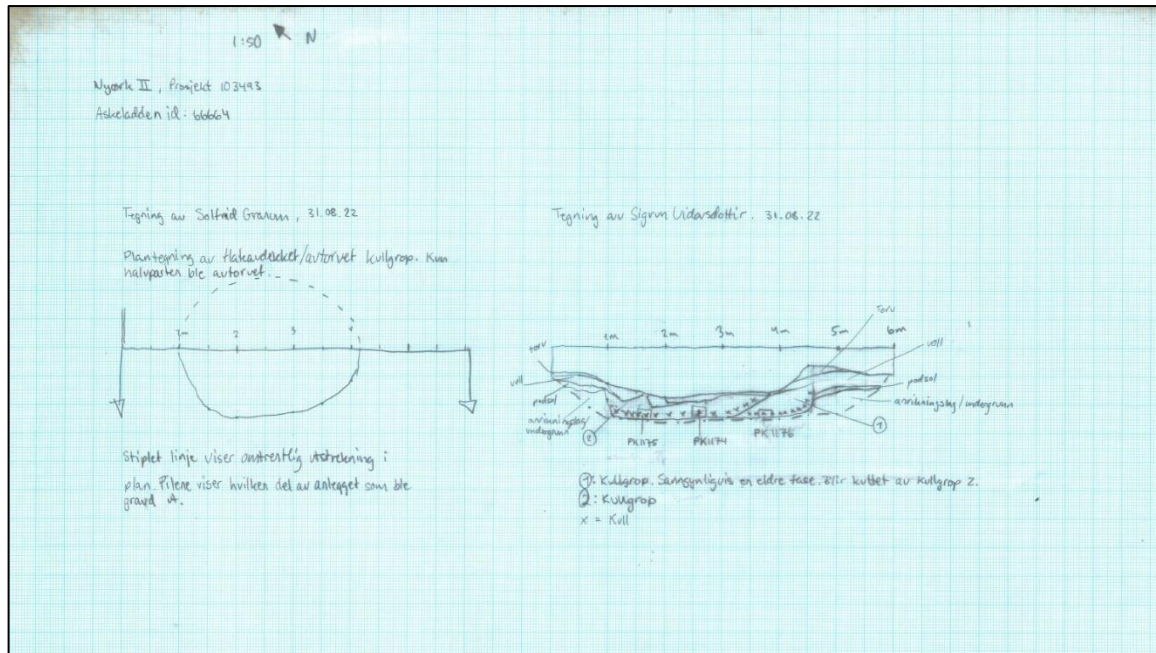 1:50 N
Nyørk II, Prosjekt 103493
Askeladden id: 66664
Tegning av Solfrid Granum, 31.08.22
Plantegning av flateavdekket/avtorvet kullgrop. Kun
halvparten ble avtorvet.
1m 2 3 4
Stiplet linje viser omtrentlig utstrekning i
plan. Pilene viser hvilken del av anlegget som ble
gravd ut.
Tegning av Sigrun Vidarsdottir. 31.08.22
torv
1m 2m 3m 4m 5m 6m
torv
voll
voll
podsol
podsol
anrikningslag/undergrunn
anrikningslag/
undergrunn
2
1
PK1175 PK1174 PK1176
1: Kullgrop. Sannsynligvis en eldre fase. Blir kuttet av kullgrop 2.
2: Kullgrop
x = Kull